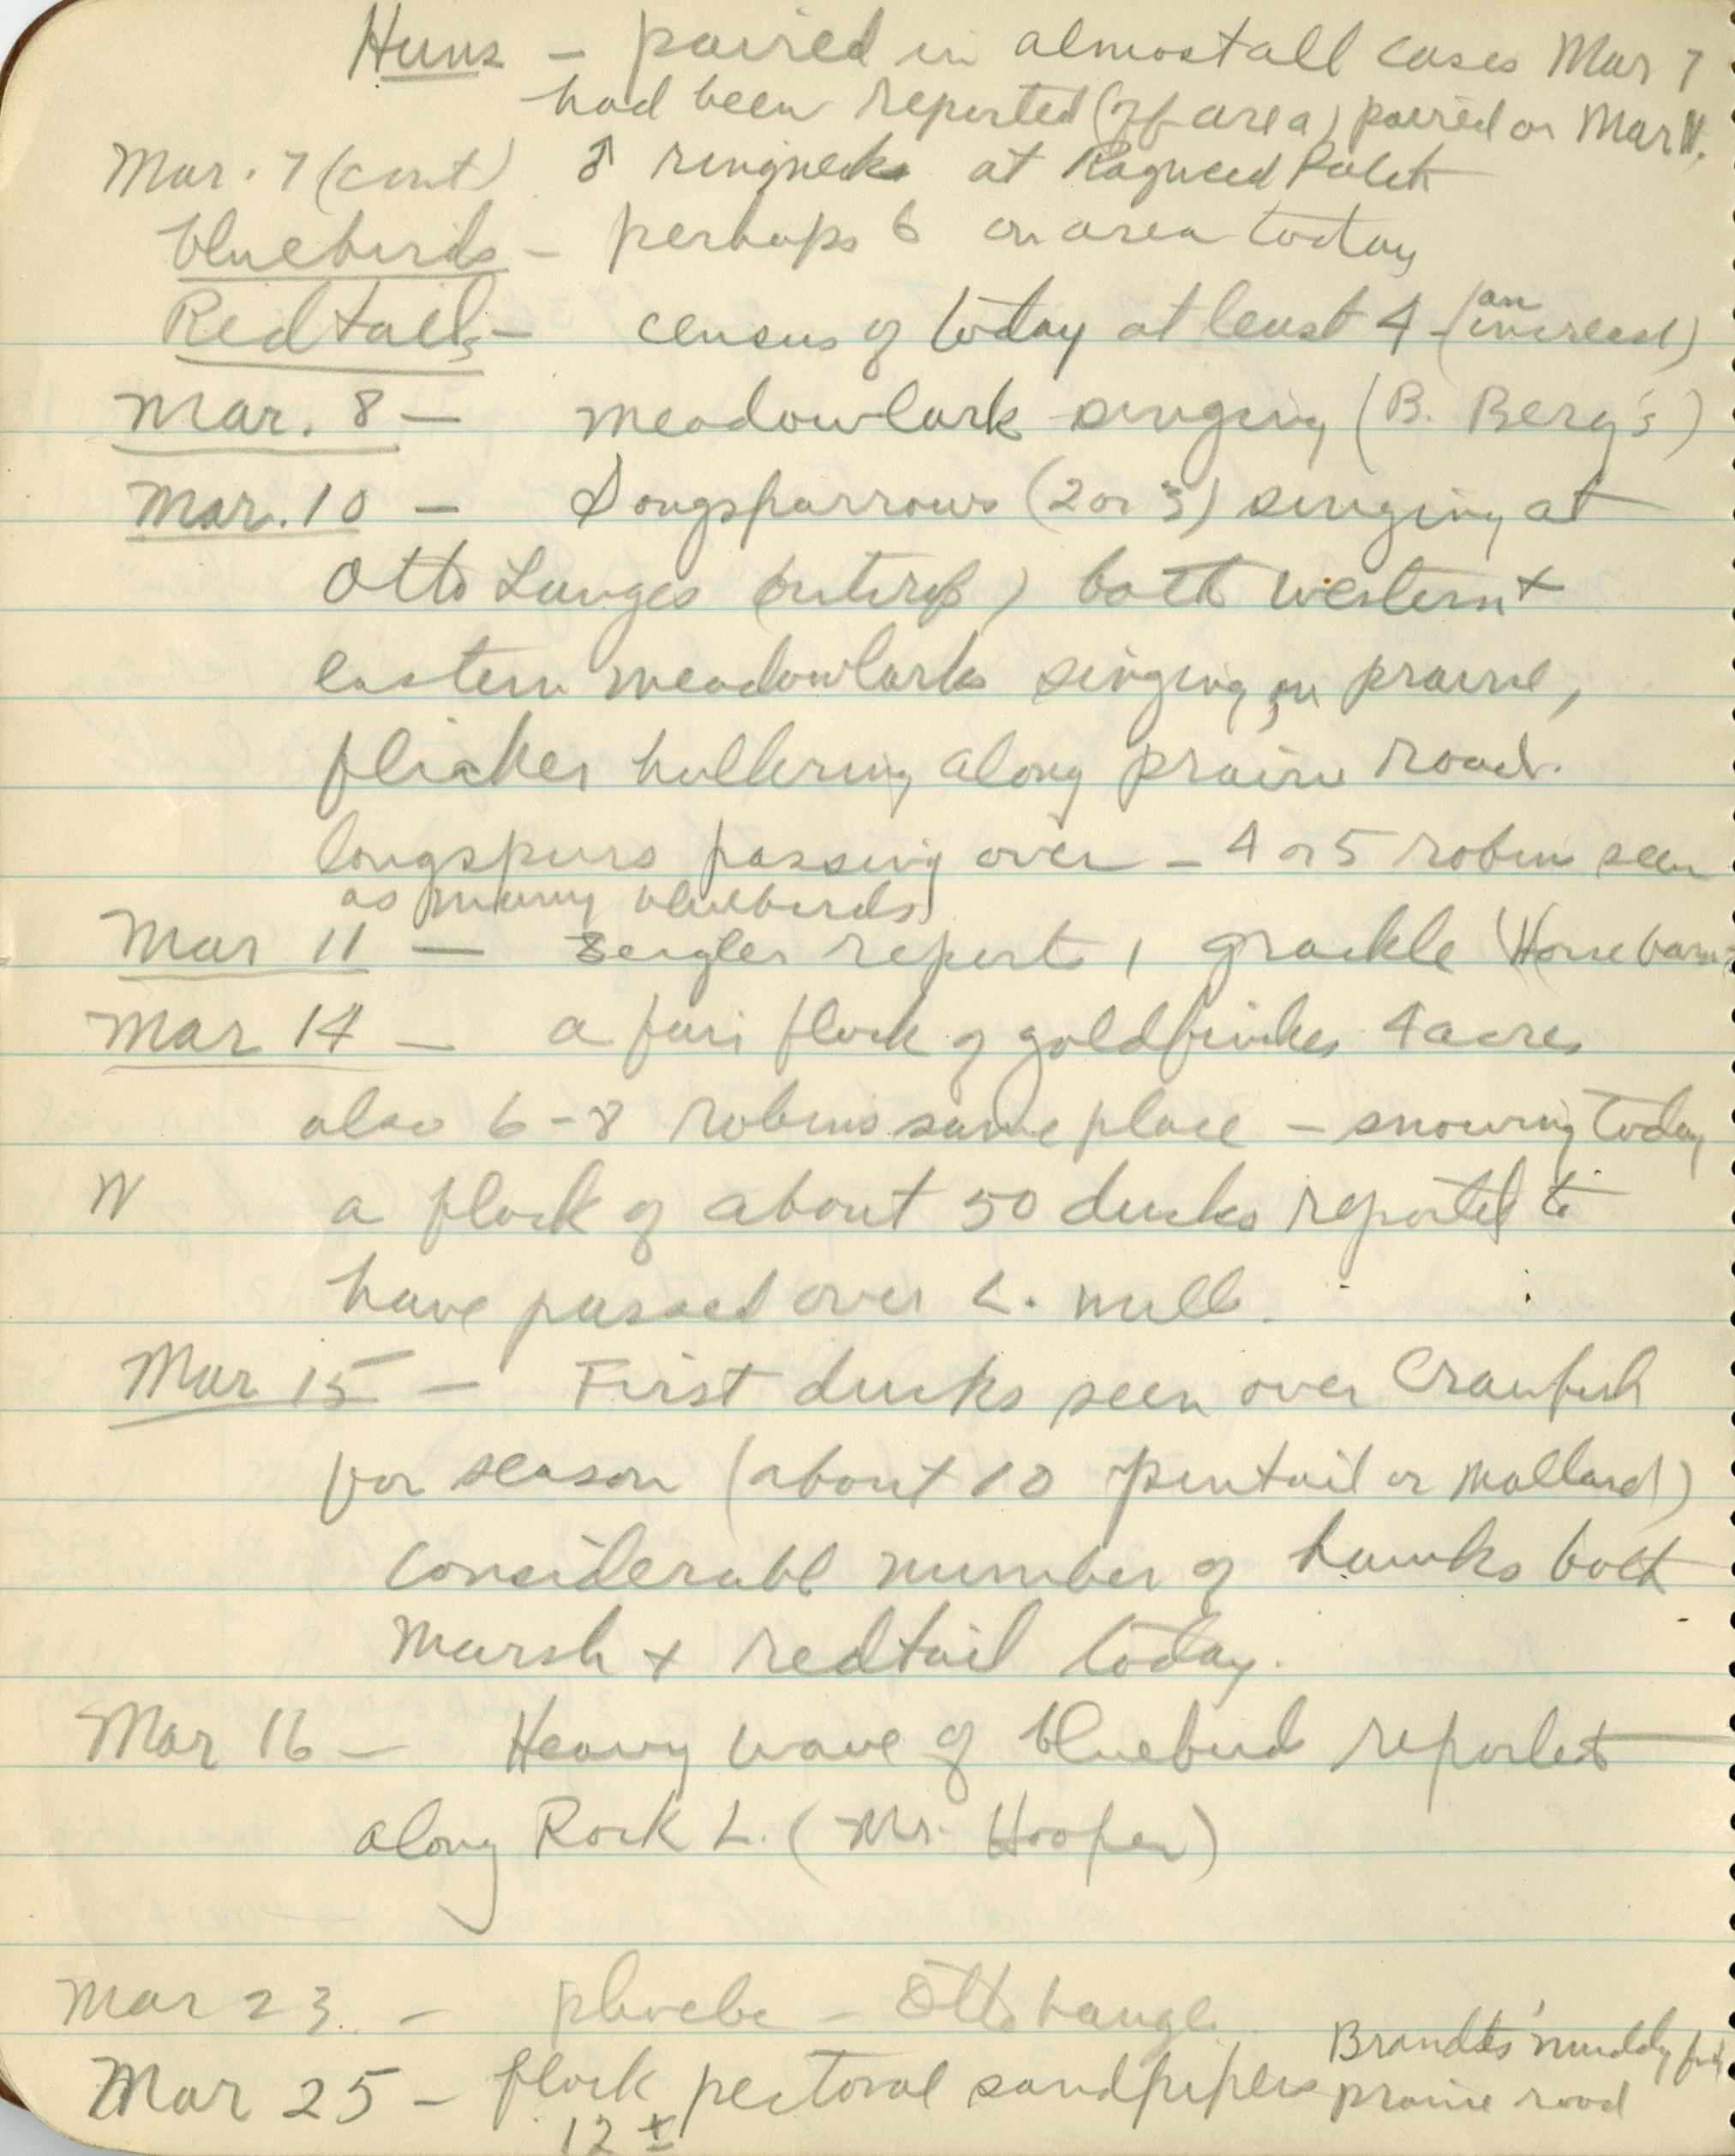 Huns – paired in almost all cases Mar 7
had been reported (off area) paired on Mar
Mar. 7 (cont) ♂ ringnecks at Ragweed Patch
bluebirds – perhaps 6 on area today
Redtails – census of today at least 4 – (an increase)
Mar. 8 – meadowlark singing (B. Berg's)
Mar. 10 – Songsparrows (2 or 3) singing at
Otto Langes both western +
eastern meadowlarks singing on prairie,
flicker hollering along prairie road.
longspurs passing over – 4 or 5 robins seen
as many bluebirds
Mar 11 – reports 1 grackle
Mar 14 – a fair flock of goldfinches 4 acres
also 6-8 robins same place – snowing today
N a flock of about 50 ducks reported to
have passed over L. mills.
Mar 15 – First ducks seen over Crawfish
for season (about 10 pintail or mallard)
considerable number of hawks both
marsh + redtail today.
Mar 16 – Heavy wave of bluebirds reported
along Rock L. (Mr. Hooper)
Mar 23. – phoebe – Otto Lange
Mar 25 – flock pectoral sandpipers Brandts' muddy
12 ± prairie road